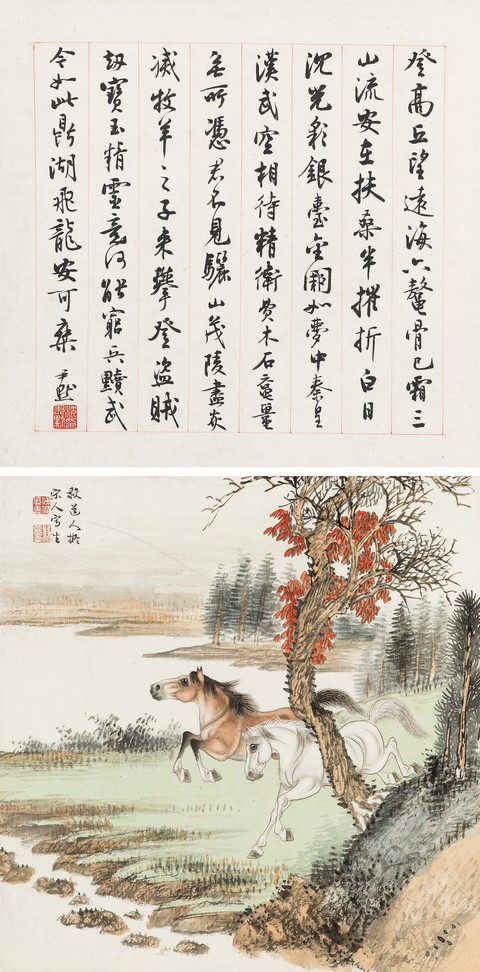 登高丘望遠海六鰲骨已霜三
山流安在扶桑半摧折白日
沈光彩銀臺金闕如夢中秦皇
漢武空相待精衛費木石黿鼉
無所憑君不見驪山茂陵盡灰
滅牧羊之子來攀登盜賊
劫寶玉精靈竟何能窮兵黷武
今如此鼎湖飛龍安可乘 尹默
道人撫
宋人寫生